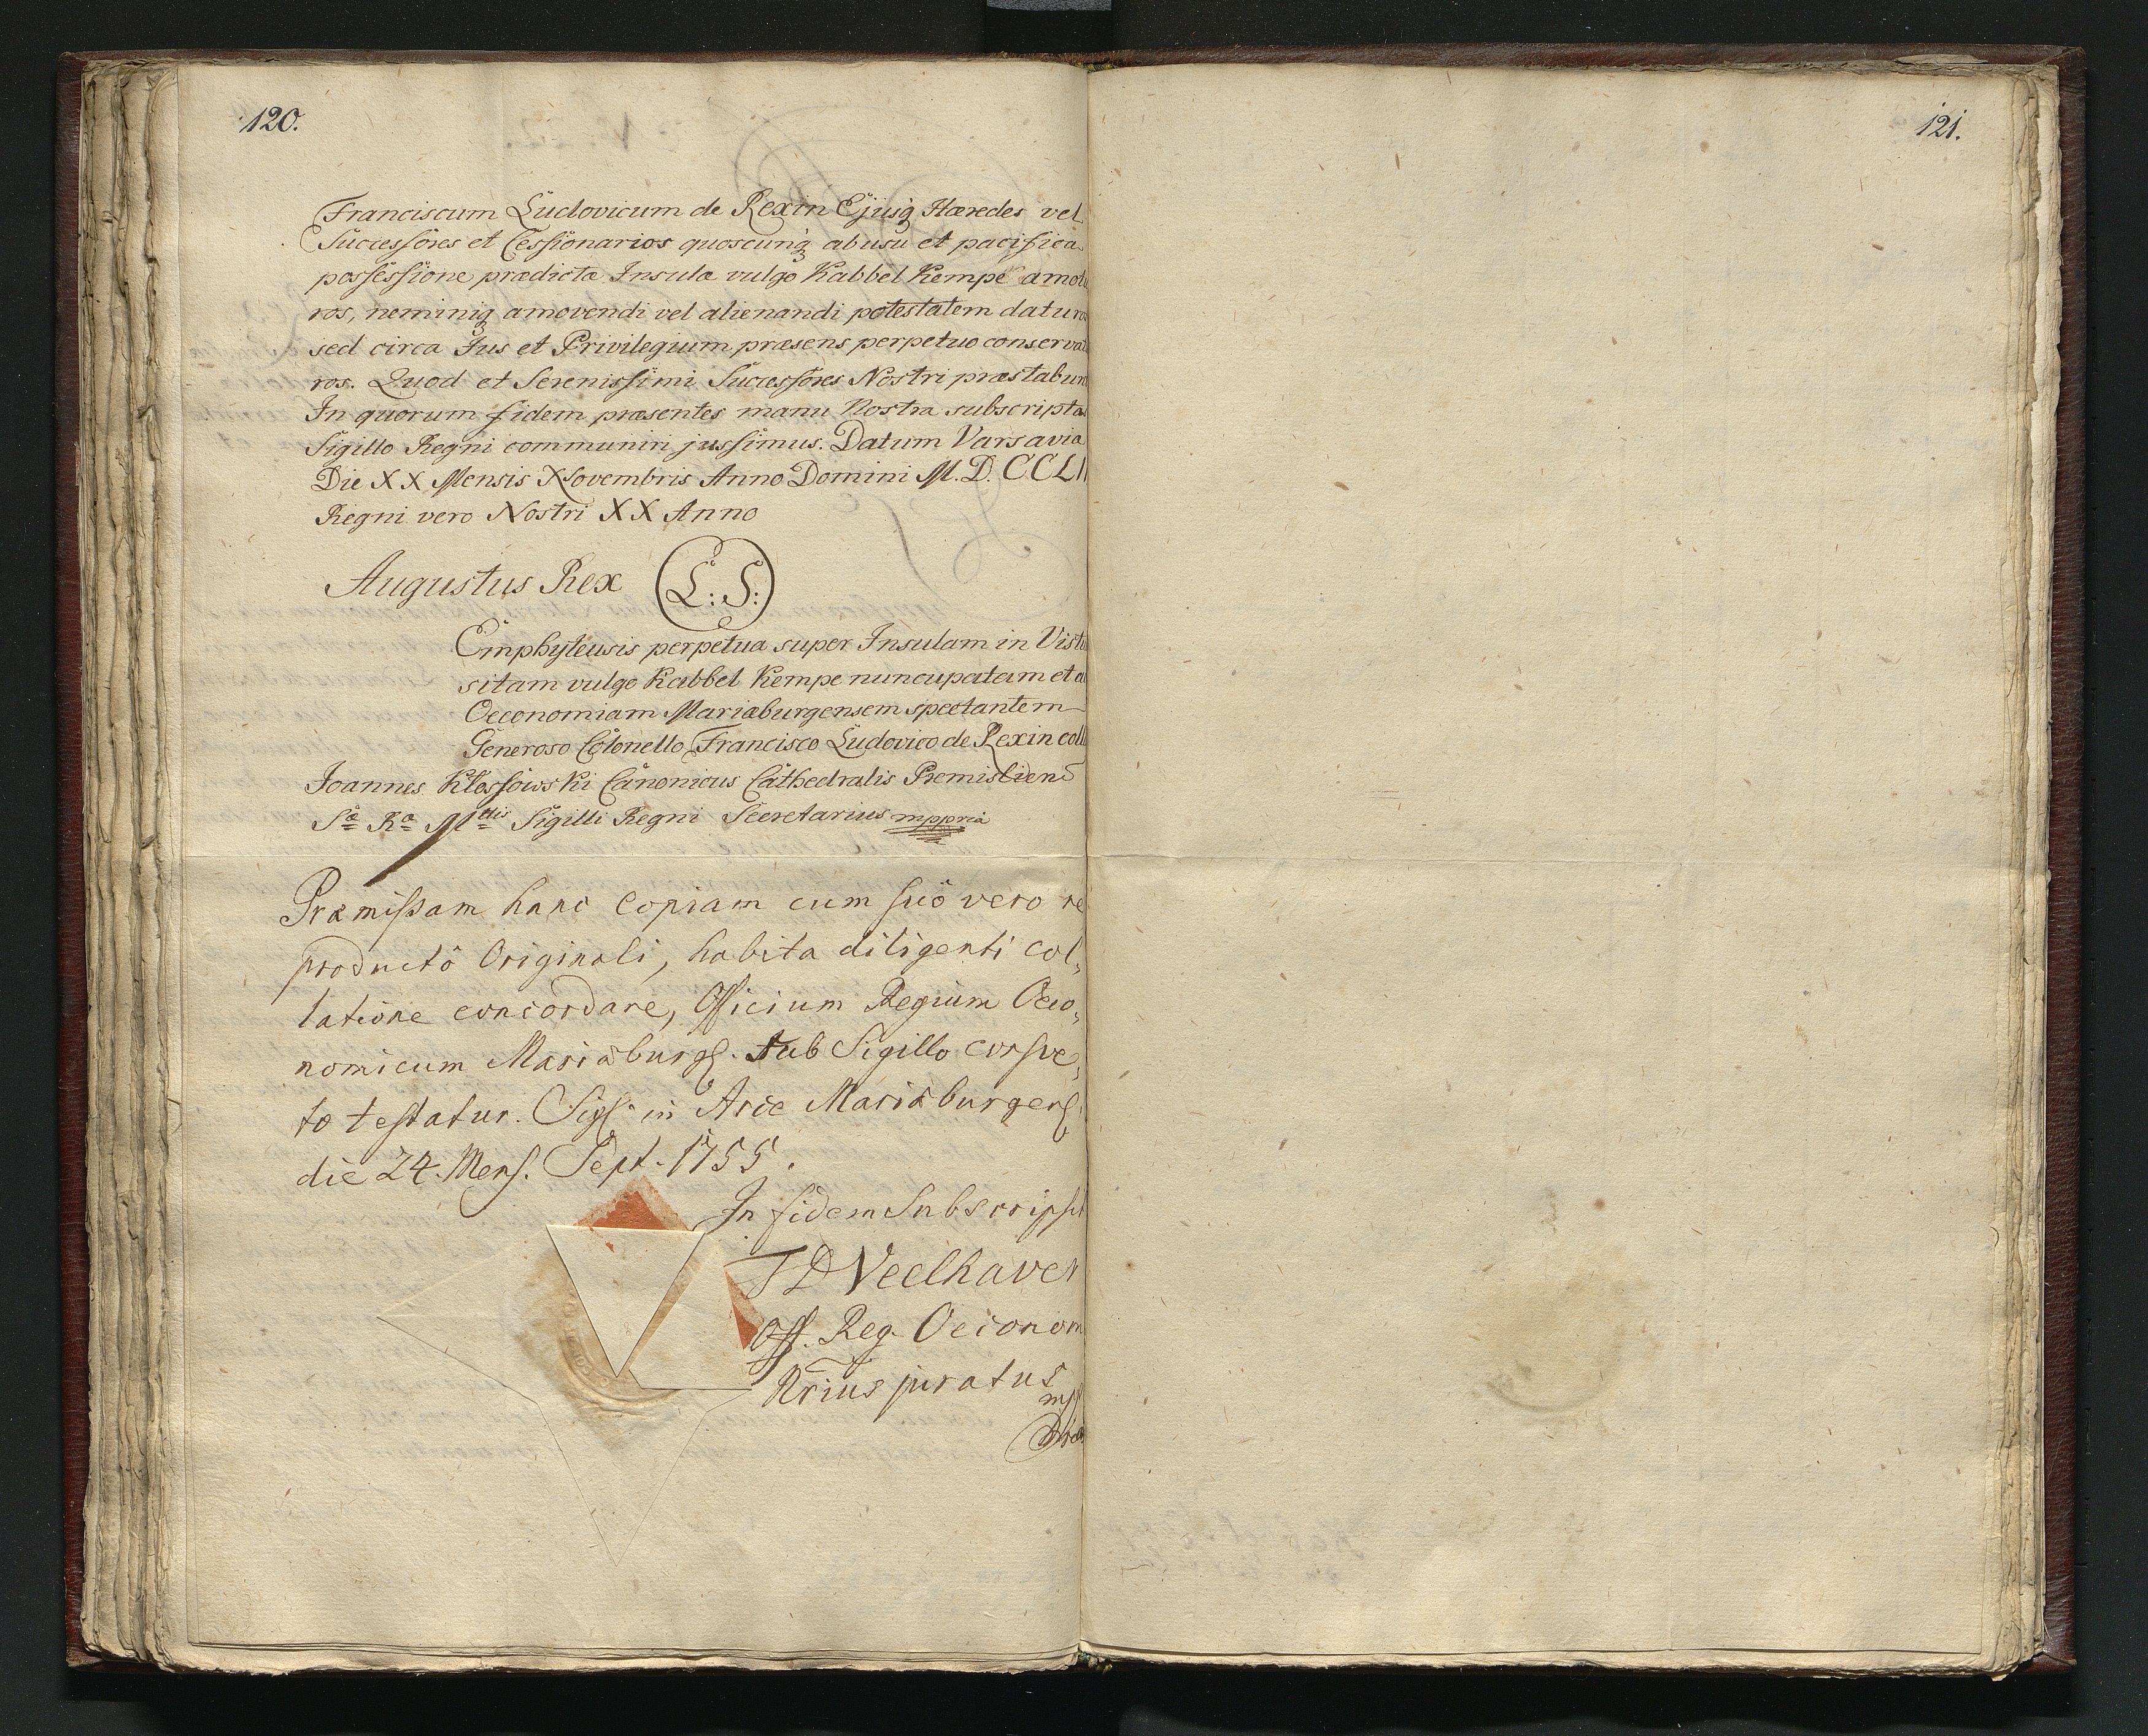 120.
121.
Franciscum Ludovicum de Rexin Ejusq Hæredes vel
Successores et Cessionarios quoscunq ab usu et pacifica
possessione prædictæ Insulæ vulgo Kabbel Kempe amotu
ros, neminiq amovendi vel alienandi potestatem daturo
sed circa Jus et Privilegium præsens perpetuo conservatu
ros. Quod et Serenissimi Successores Nostri præstabun
In quorum fidem præsentes manu Nostra subscriptas
Sigillo Regni communiri jussimus. Datum Varsaviæ
Die XX Mensis Novembris Anno Domini M.D.CCLII
Regni vero Nostri XX Anno
Augustus Rex L:S:
Emphyteusis perpetua super Insulam in Vistu
sitam vulgo Kabbel Kempe nuncupatam et a
Oeconomiam Mariæburgensem spectantem
Generoso Colonello Francisco Ludovico de Rexin coll
Joannes Klossowski Canonicus Cathedralis Premislienś
Sæ Ræ Mttis Sigilli Regni Secretarius mppria
Præmissam hanc Copiam cum suô vero re
productô Originali, habita diligenti Col,
latione concordare, Officium Regium Oeco,
nomicum Mariæburgs. sub Sigillo consve,
to testatur. Sigs. in Arce Mariæburgens.
die 24. Mens. Sept. 1755.
In fidem Subscripsit
Veelhaver
Off. Reg. Oeconom
Nrius juratus
mp